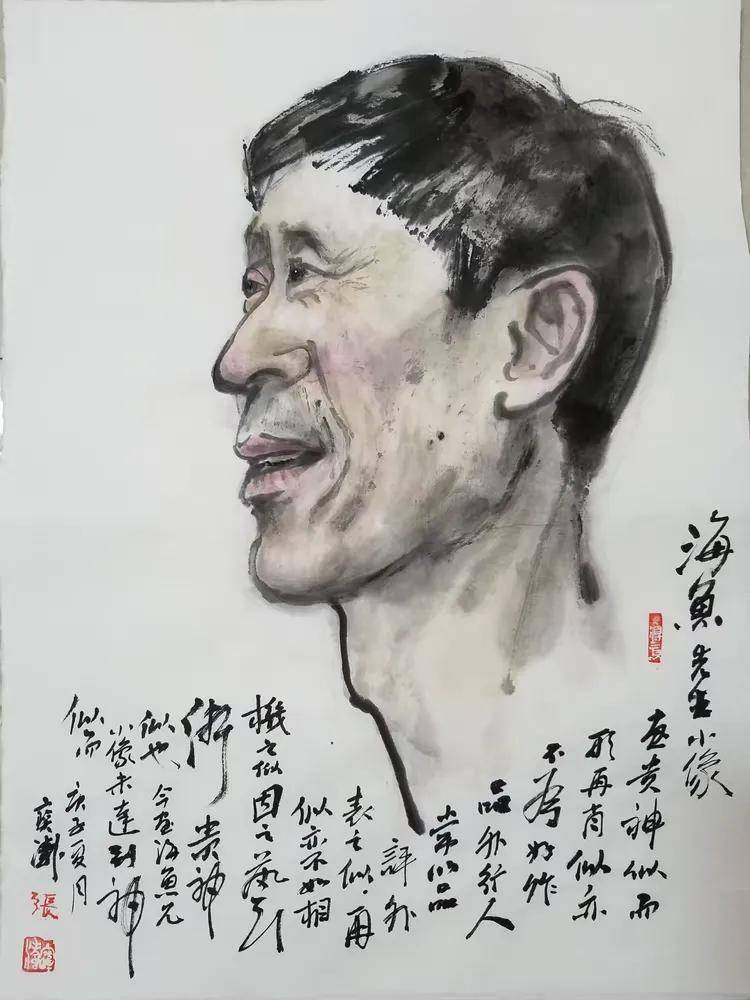 海魚先生小像
画贵神似而
形再肖似亦
不为好作
品外行人
常以品
評外
表之似·再
似亦不如相
機之似因之藝
術贵神
似也今画海魚兄
小像未達到神
似而
庚子夏月
張